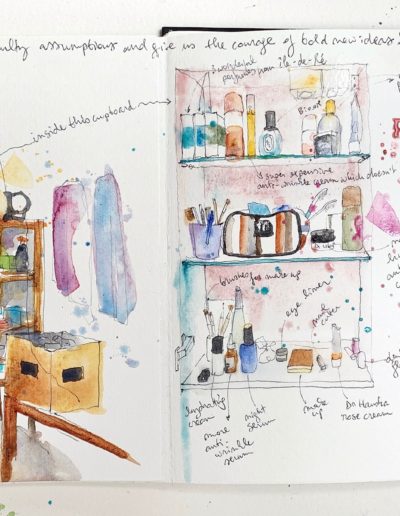 faulty assumptions and give us the courage of bold new ideas
3 wonderful
perfumes from Île-de-Ré
inside this cupboard
Biook
3 super expensive
anti-wrinkle cream which doesn't
brushes for make up
eye liner
cover
hydrating
cream
more
anti-
wrinkle
serum
night
serum
make
up
Dr Hauschka
rose cream